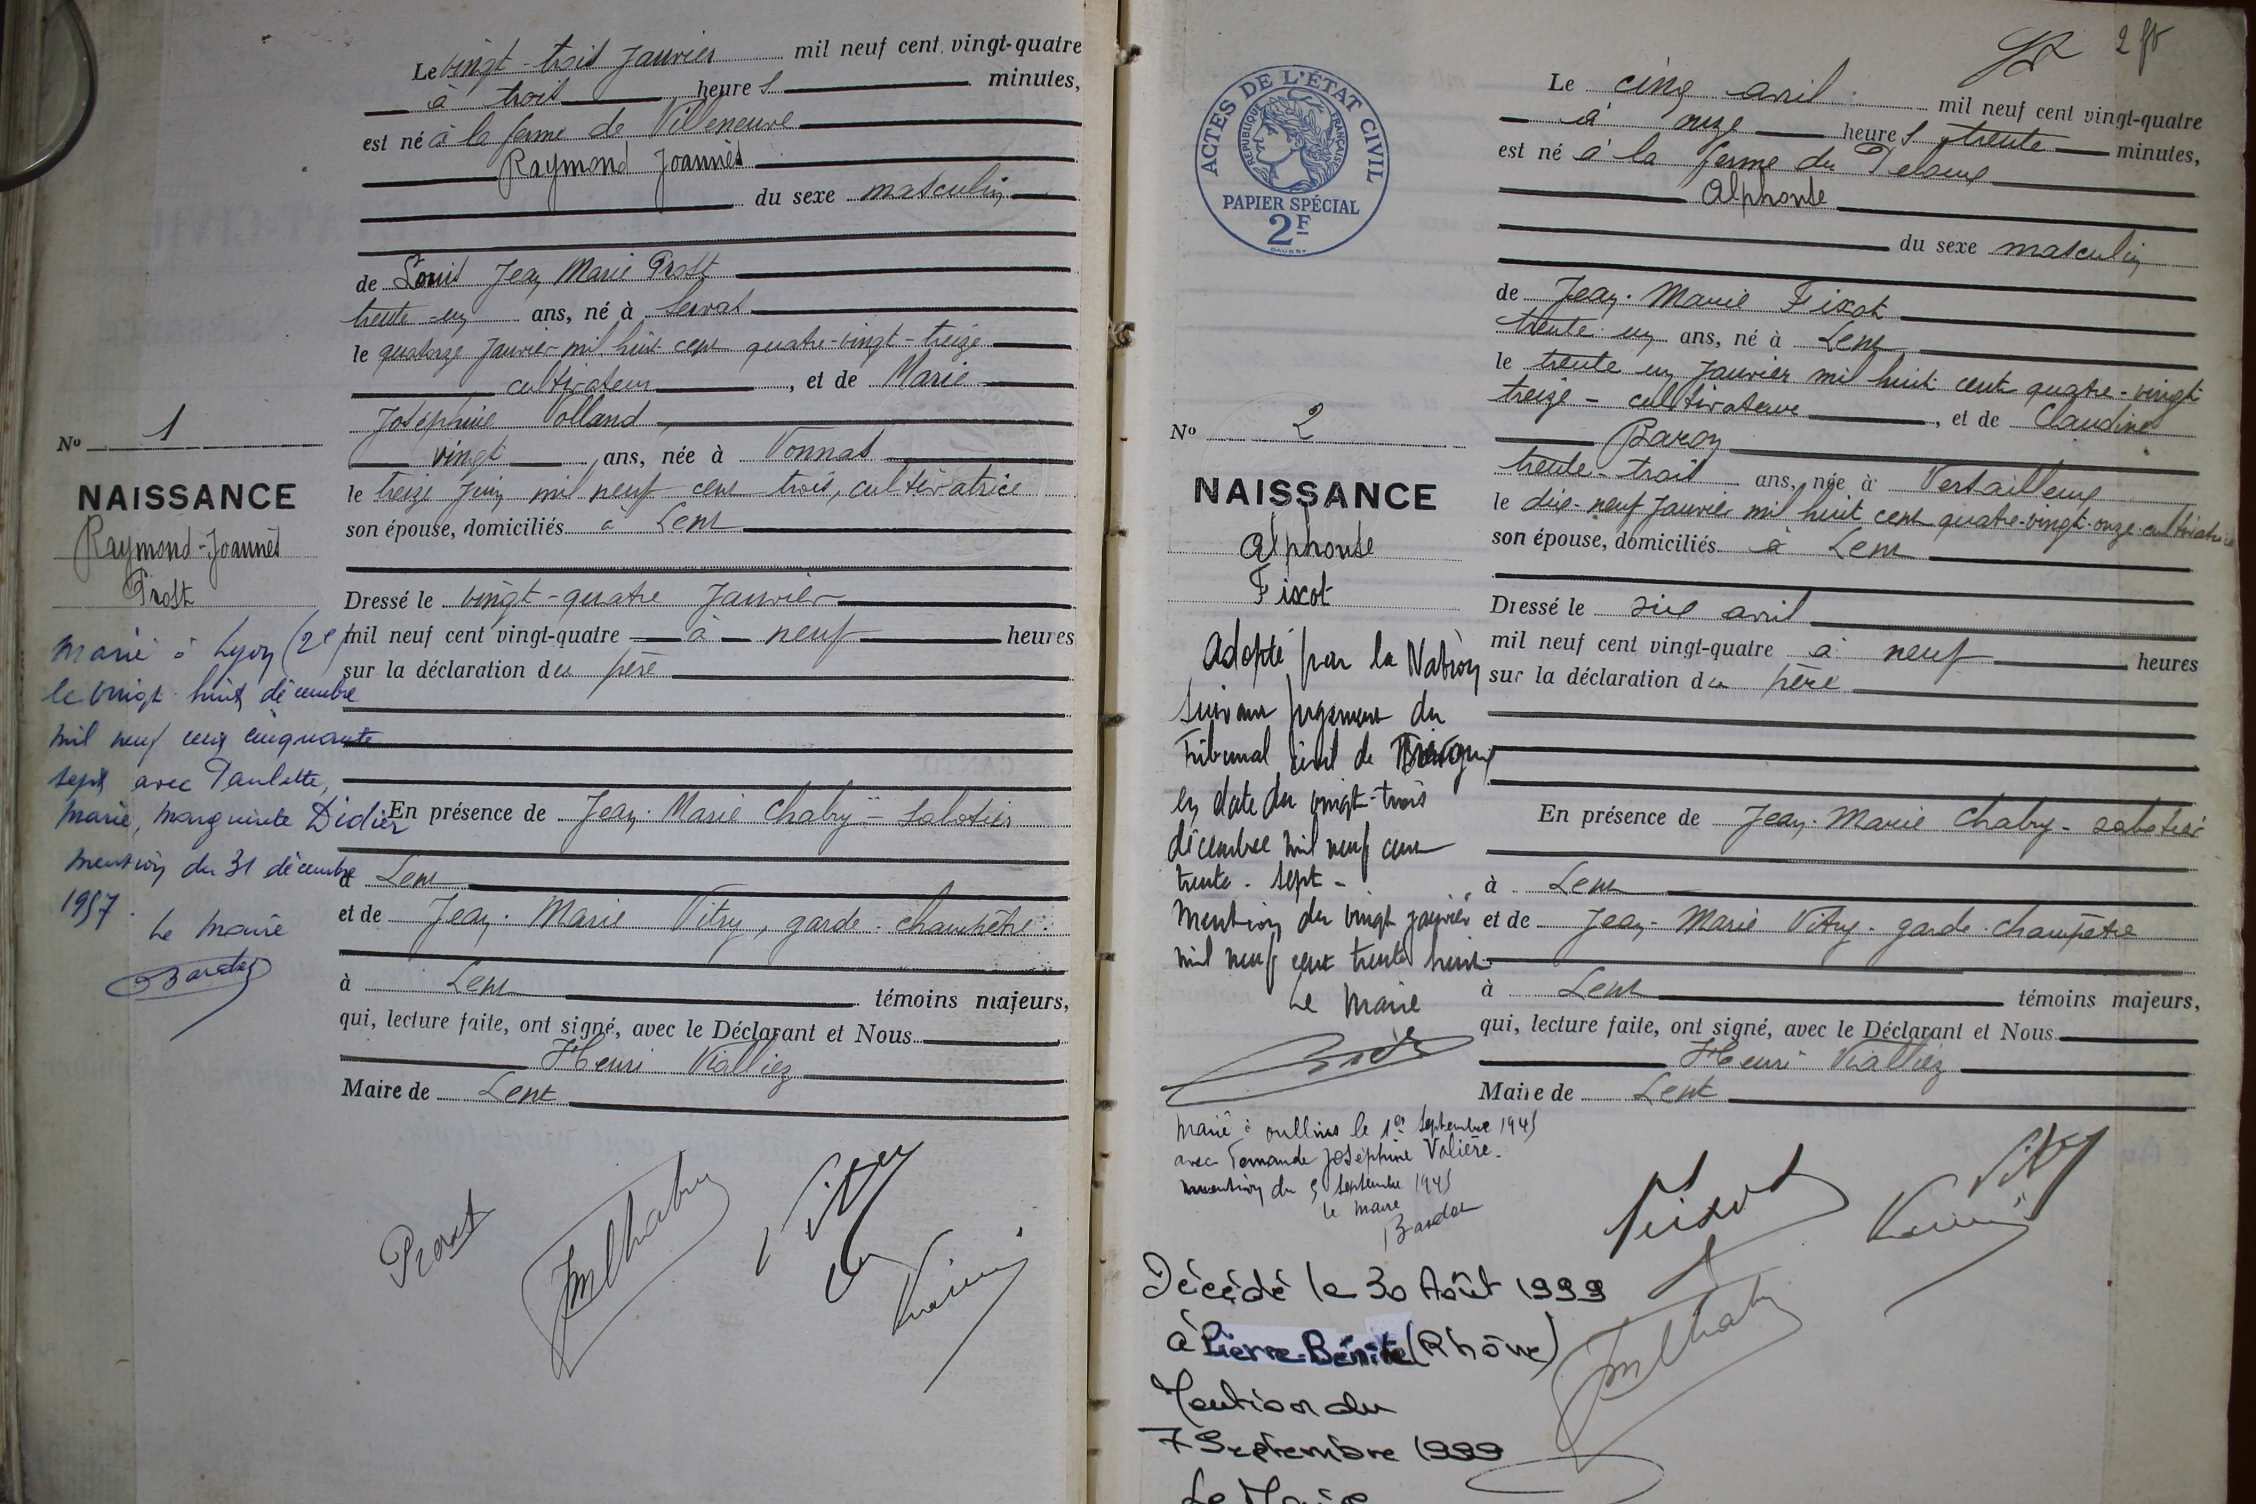 Le vingt-trois Janvier mil neuf cent vingt-quatre
à trois heures minutes,
est né à la ferme de Villeneuve
Raymond Joannès
du sexe masculin
de Louis Jean Marie Prost
trente-un ans, né à Servas
le quatorze Janvier mil huit cent quatre-vingt-treize
cultivateur, et de Marie
Joséphine Volland,
vingt ans, née à Vonnas
le treize Juin mil neuf cent trois, cultivatrice
son épouse, domiciliés à Lent
Dressé le vingt-quatre Janvier
mil neuf cent vingt-quatre à neuf heures
sur la déclaration du père
En présence de Jean-Marie Chabry - sabotier
à Lent
et de Jean-Marie Vitry, garde-champêtre
à Lent témoins majeurs,
qui, lecture faite, ont signé, avec le Déclarant et Nous
Henri Vialliez
Maire de Lent
Nº 1
NAISSANCE
Raymond-Joannès
Prost
Marié à Lyon (2e)
le vingt-huit décembre
mil neuf cent cinquante
sept avec Paulette,
Marie, Marguerite Didier
Mention du 31 décembre
1957.
Le Maire
Prost
JMChabry
Vitry
2 fr
ACTES DE L'ÉTAT CIVIL
RÉPUBLIQUE FRANÇAISE
PAPIER SPÉCIAL
2F
Le cinq avril mil neuf cent vingt-quatre
à onze heures trente minutes,
est né à la ferme du
Alphonse
du sexe masculin
de Jean-Marie Fixot
trente-un ans, né à Lent
le trente un Janvier mil huit cent quatre-vingt
treize - cultivateur, et de Claudine
Baron
trente-trois ans, née à Versailleux
le dix-neuf Janvier mil huit cent quatre-vingt-onze cultivatrice
son épouse, domiciliés à Lent
Dressé le six avril
mil neuf cent vingt-quatre à neuf heures
sur la déclaration du père
En présence de Jean-Marie Chabry - sabotier
à Lent
et de Jean-Marie Vitry - garde-champêtre
à Lent témoins majeurs,
qui, lecture faite, ont signé, avec le Déclarant et Nous
Henri Vialliez
Maire de Lent
Nº 2
NAISSANCE
Alphonse
Fixot
Adopté par la Nation
suivant jugement du
Tribunal civil de Bourg
en date du vingt-trois
décembre mil neuf cent
trente-sept -
Mention du vingt janvier
mil neuf cent trente huit
Le Maire
Marié à Oullins le 1er Septembre 1945
avec Fernande Joséphine Valière.
Mention du 5 Septembre 1945
Le Maire
Fixot
Vitry
JMChabry
Décédé le 30 Août 1999
à Pierre-Bénite (Rhône)
Mention du
7 Septembre 1999
Le Maire